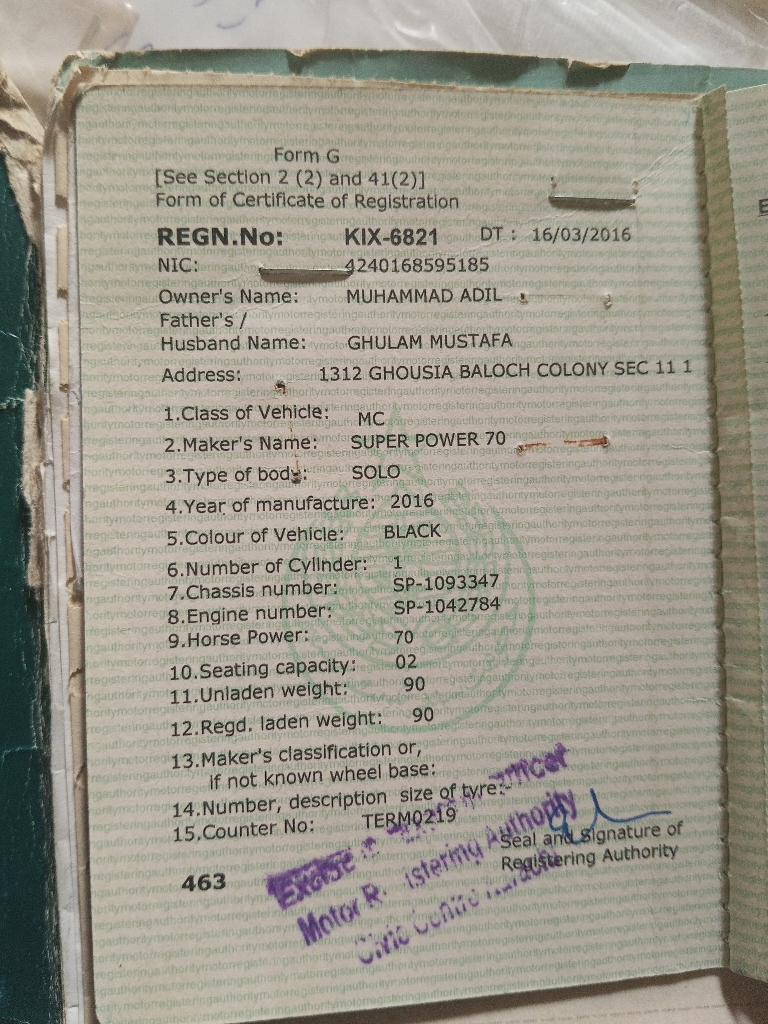 Form G
[See Section 2 (2) and 41(2)]
Form of Certificate of Registration
REGN.No: KIX-6821 DT : 16/03/2016
NIC: 4240168595185
Owner's Name: MUHAMMAD ADIL
Father's /
Husband Name: GHULAM MUSTAFA
Address: 1312 GHOUSIA BALOCH COLONY SEC 11 1
1.Class of Vehicle: MC
2.Maker's Name: SUPER POWER 70
3.Type of body: SOLO
4.Year of manufacture: 2016
5.Colour of Vehicle: BLACK
6.Number of Cylinder: 1
7.Chassis number: SP-1093347
8.Engine number: SP-1042784
9.Horse Power: 70
10.Seating capacity: 02
11.Unladen weight: 90
12.Regd. laden weight: 90
13.Maker's classification or,
if not known wheel base:
14.Number, description size of tyre:
15.Counter No: TERM0219
Seal and Signature of
Registering Authority
463
Excise
Motor Authority
Civic Centre